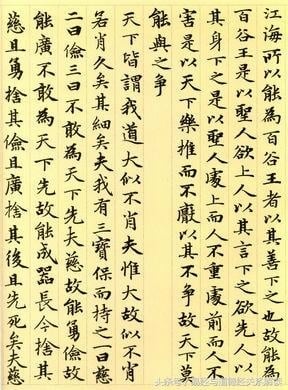 江海所以能為百谷王者以其善下之也故能為
百谷王是以聖人欲上人以其言下之欲先人以
其身下之是以聖人處上而人不重處前而人不
害是以天下樂推而不厭以其不爭故天下莫
能與之爭
天下皆謂我道大似不肖夫惟大故似不肖
若肖久矣其細矣夫我有三寶保而持之一曰慈
二曰儉三曰不敢為天下先夫慈故能勇儉故
能廣不敢為天下先故能成器長今捨其
慈且勇捨其儉且廣捨其後且先死矣夫慈